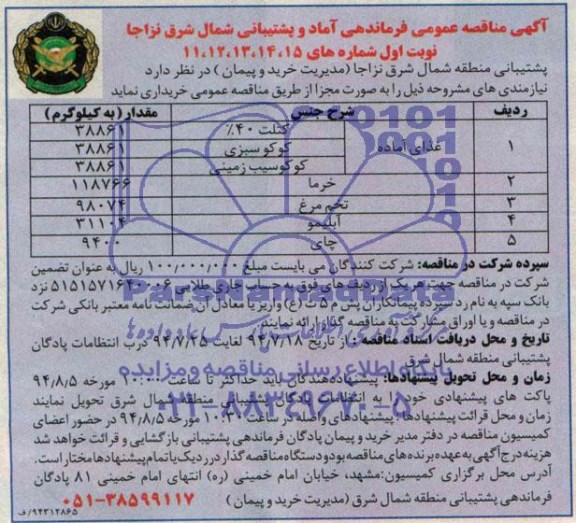 آگهی مناقصه عمومی فرماندهی آماد و پشتیبانی شمال شرق نزاجا
نوبت اول شماره های ۱۱،۱۲،۱۳،۱۴،۱۵
پشتیبانی منطقه شمال شرق نزاجا (مدیریت خرید و پیمان) در نظر دارد
نیازمندی های مشروحه ذیل را به صورت مجزا از طریق مناقصه عمومی خریداری نماید
ردیف شرح جنس مقدار (به کیلوگرم)
۱ غذای آماده کتلت ۴۰٪ ۳۸۸۶۱
کوکو سبزی ۳۸۸۶۱
کوکو سیب زمینی ۳۸۸۶۱
۲ خرما ۱۱۸۷۶۶
۳ تخم مرغ ۹۸۰۷۴
۴ آبلیمو ۳۱۱۰۴
۵ چای ۹۴۰۰
سپرده شرکت در مناقصه: شرکت کنندگان می بایست مبلغ ۱۰۰,۰۰۰,۰۰۰ ریال به عنوان تضمین
شرکت در مناقصه جهت هر یک از ردیف های فوق به حساب جاری طلایی ۵۱۵۱۵۷۱۶۴۰۰۰۶ نزد
بانک سپه به نام رد سپرده پیمانکاران پش م ۵ ث (ع) واریز یا معادل آن ضمانت نامه معتبر بانکی شرکت
در مناقصه و یا اوراق مشارکت به مناقصه گذار ارائه نمایند.
تاریخ و محل دریافت اسناد مناقصه: از تاریخ ۹۴/۷/۱۸ لغایت ۹۴/۷/۲۵ درب انتظامات پادگان
پشتیبانی منطقه شمال شرق
زمان و محل تحویل پیشنهادها: پیشنهاد دهندگان باید حداکثر تا ساعت ۱۰:۰۰ مورخه ۹۴/۸/۵
پاکت های پیشنهادی خود را به انتظامات پادگان پشتیبانی منطقه شمال شرق تحویل نمایند
زمان و محل قرائت پیشنهادها: پیشنهادهای واصله در ساعت ۱۰:۳۰ مورخه ۹۴/۸/۵ در حضور اعضای
کمیسیون مناقصه در دفتر مدیر خرید و پیمان پادگان فرماندهی پشتیبانی بازگشایی و قرائت خواهد شد
هزینه درج آگهی به عهده برنده های مناقصه بوده و دستگاه مناقصه گذار در رد یک یا تمام پیشنهادها مختار است.
آدرس محل برگزاری کمیسیون: مشهد، خیابان امام خمینی (ره) انتهای امام خمینی ۸۱ پادگان
فرماندهی پشتیبانی منطقه شمال شرق (مدیریت خرید و پیمان) ۰۵۱-۳۸۵۹۹۱۱۷
۹۴۳۱۲۸۶۵/ف
ParsNamadData
پایگاه اطلاع رسانی مناقصه و مزایده
۰۲۱-۸۸۳۴۹۶۷۰-۵